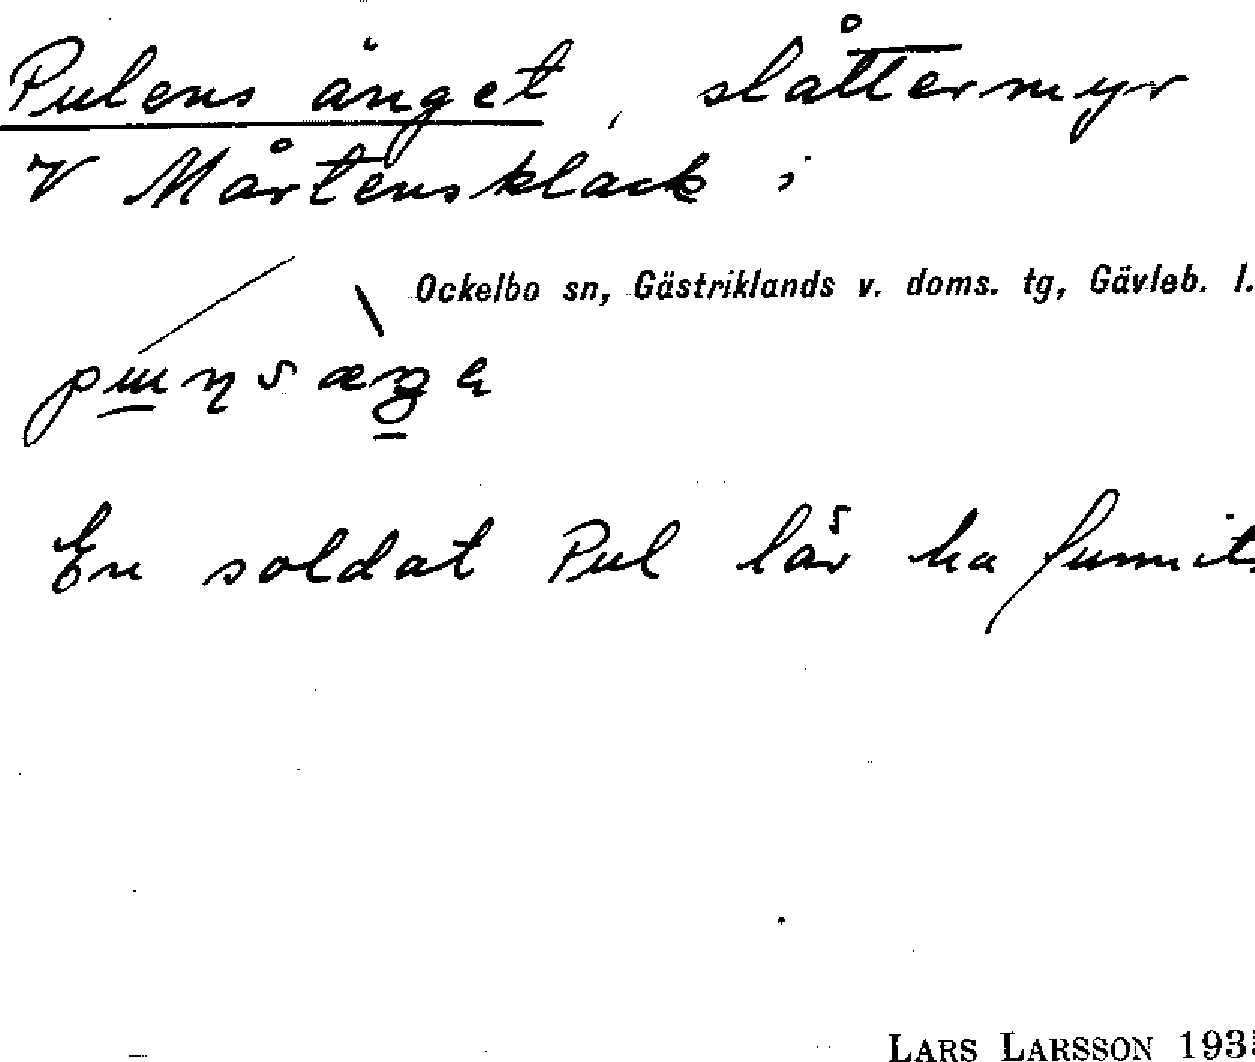 Pulens änget, slåttermyr
V Mårtensklack i
Ockelbo sn, Gästriklands v. doms. tg, Gävleb. l.
En soldat Pul lär ha funnits
LARS LARSSON 193